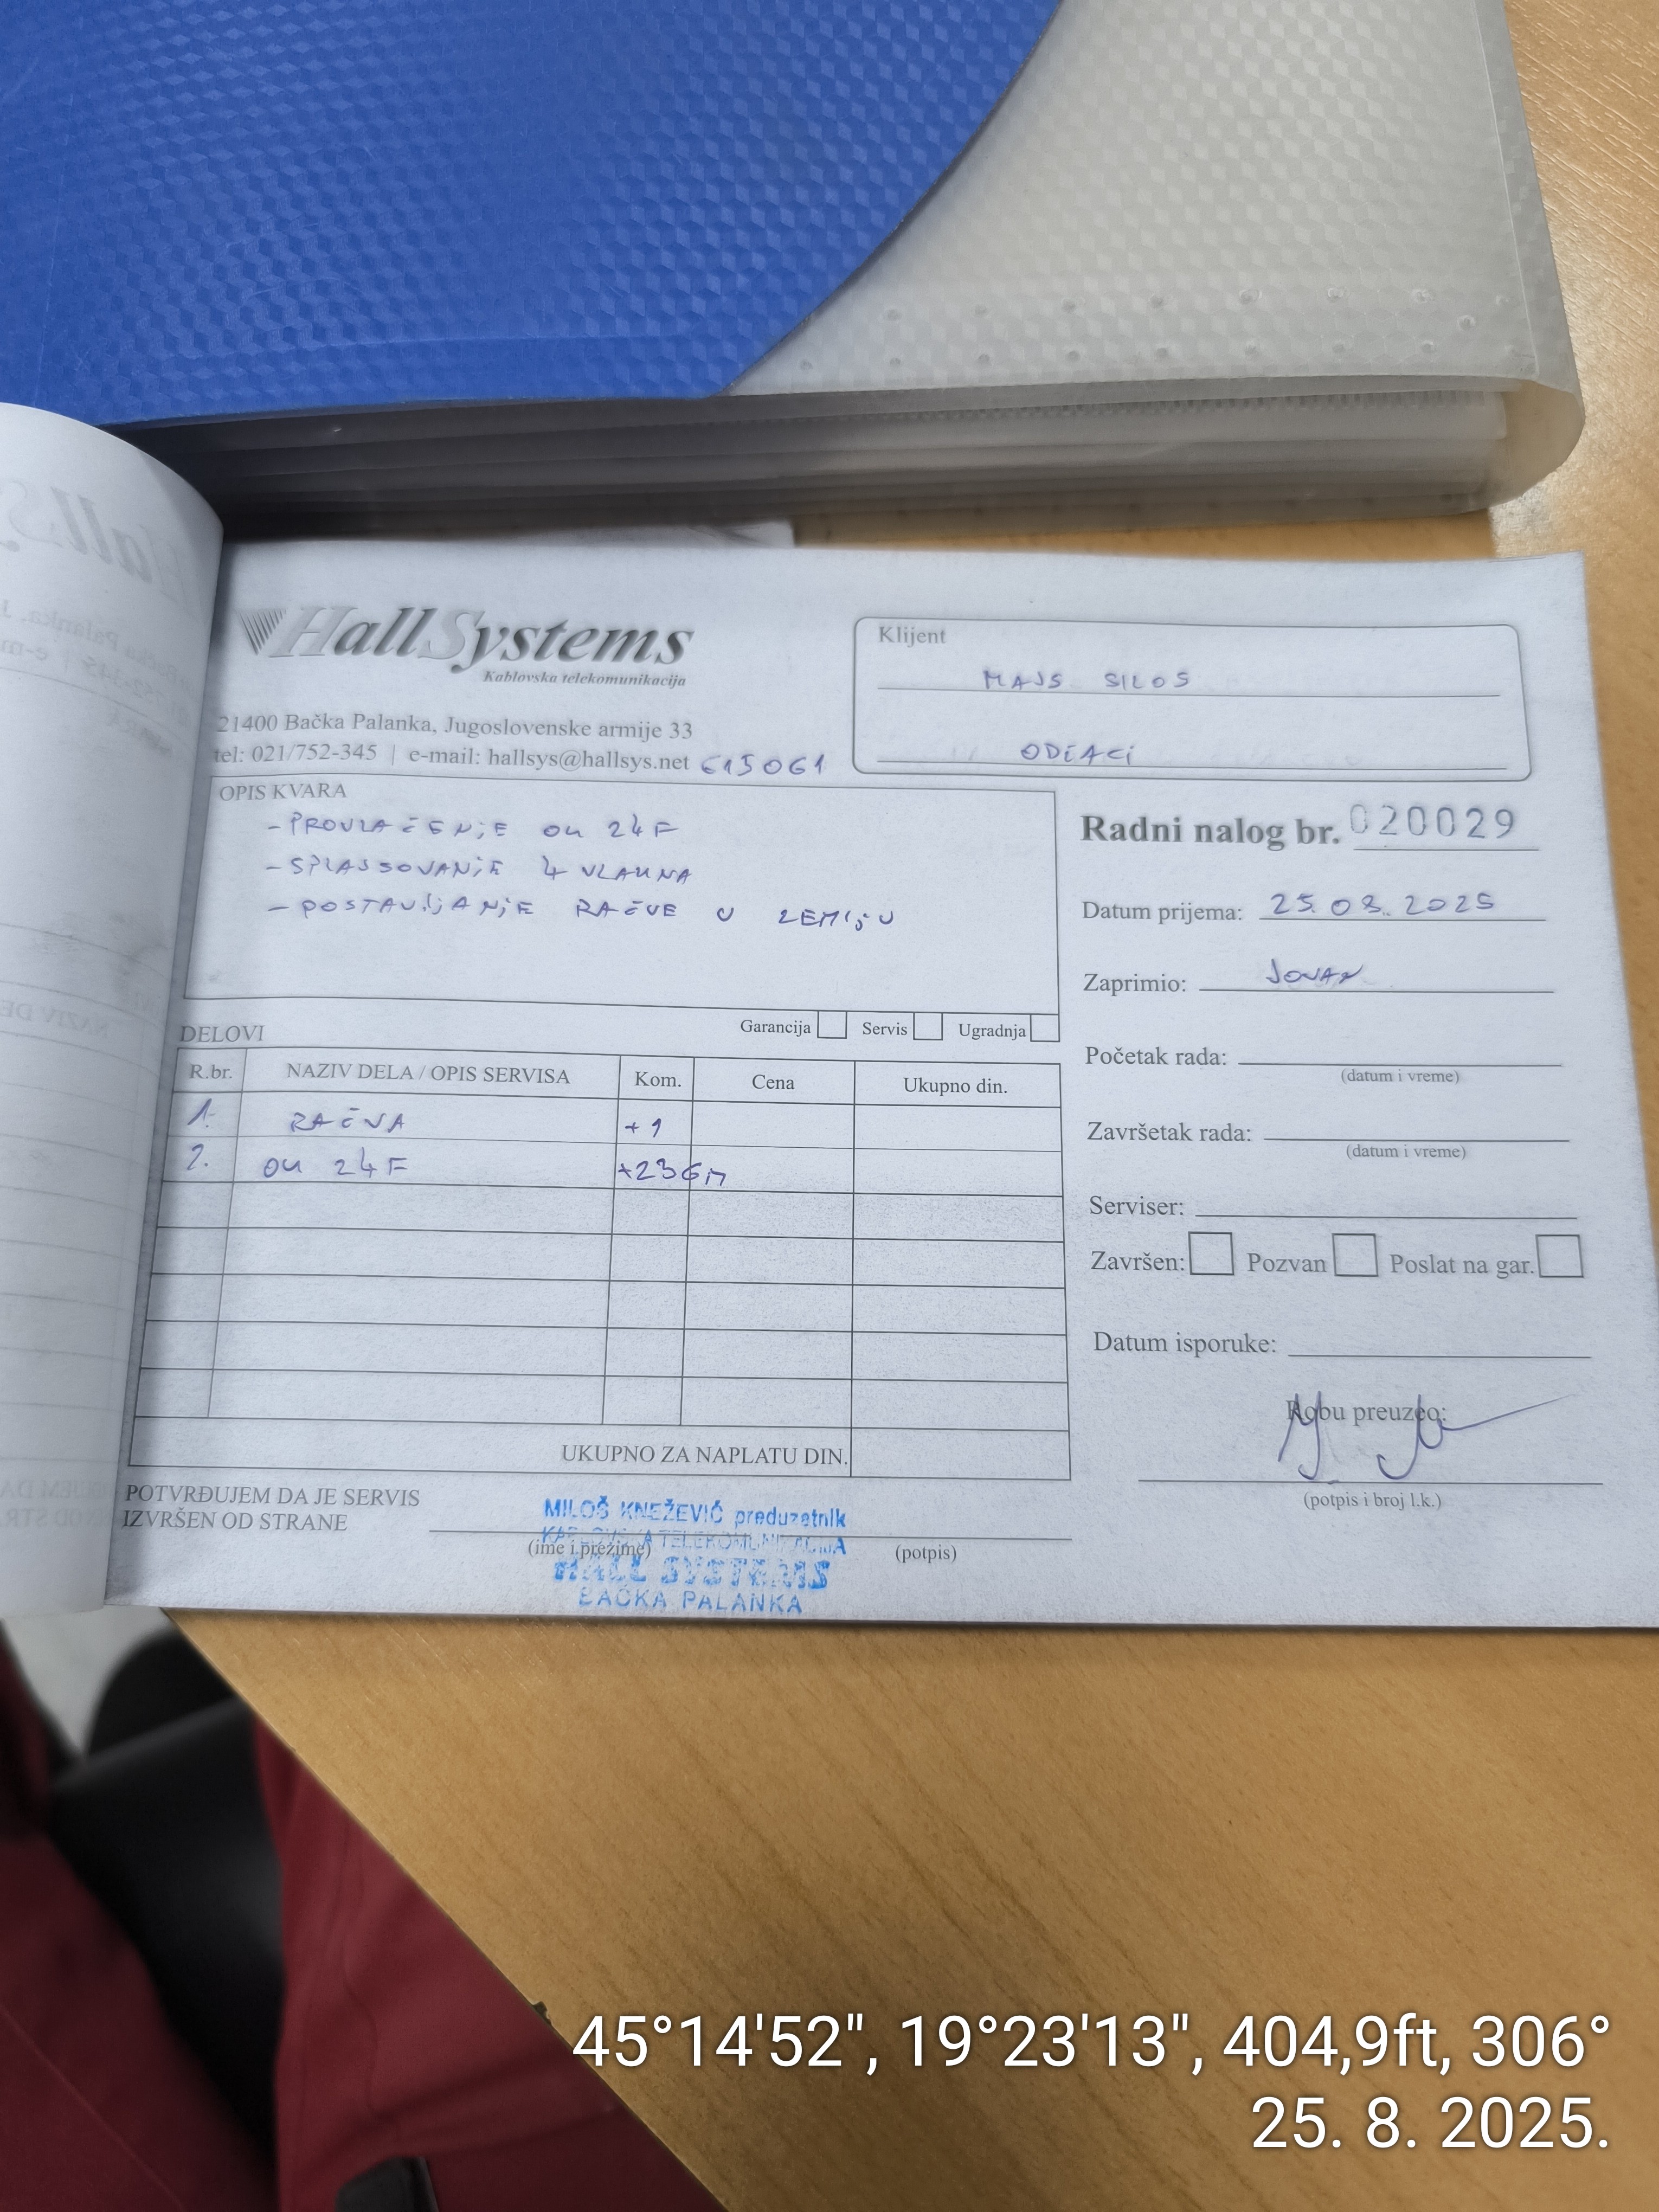 HallSystems
Kablovska telekomunikacija
21400 Bačka Palanka, Jugoslovenske armije 33
tel: 021/752-345 | e-mail: hallsys@hallsys.net 615061
Klijent
MAJS SILOS
ODŽACI
OPIS KVARA
-PROVLAČENJE OK 24F
-SPLAJSOVANJE 4 VLAKNA
-POSTAVLJANJE RAČVE U ZEMLJU
Garancija Servis Ugradnja
DELOVI
R.br. NAZIV DELA / OPIS SERVISA Kom. Cena Ukupno din.
1. RAČVA +1
2. OK 24F +236m
UKUPNO ZA NAPLATU DIN.
POTVRĐUJEM DA JE SERVIS
IZVRŠEN OD STRANE
(ime i prezime) (potpis)
MILOŠ KNEŽEVIĆ preduzetnik
KABLOVSKA TELEKOMUNIKACIJA
HALL SYSTEMS
BAČKA PALANKA
Radni nalog br. 020029
Datum prijema: 25.08.2025
Zaprimio: JOVAN
Početak rada:
(datum i vreme)
Završetak rada:
(datum i vreme)
Serviser:
Završen: Pozvan Poslat na gar.
Datum isporuke:
Robu preuzeo:
(potpis i broj l.k.)
45°14'52", 19°23'13", 404,9ft, 306°
25. 8. 2025.